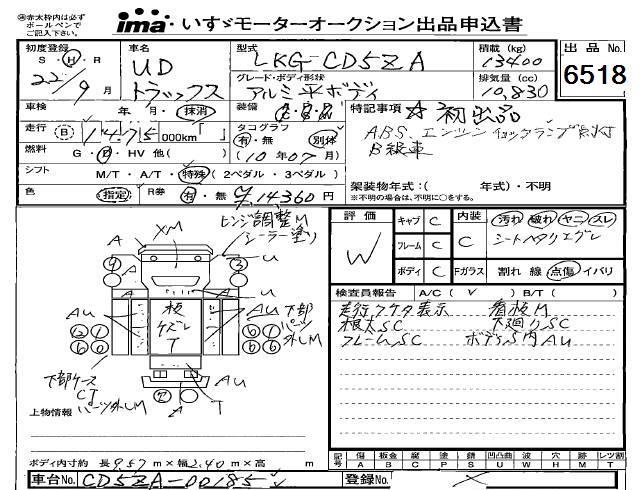 ㊟赤太枠内は必ず
ボールペンで
ご記入下さい。
ima いすゞモーターオークション出品申込書
初度登録
S・H・R
22/9月
車名
UD
トラックス
型式
LKG-CD5ZA
グレード・ボディ形状
アルミ平ボディ
積載 (kg)
13400
排気量 (cc)
10,830
出品 No.
6518
車検 年・月・抹消
装備
特記事項 ☆初出品
ABS、エンジンチェックランプ点灯
B級車
走行 (B) 000km「 」
タコグラフ
有・無 別体
(10年07月)
燃料 G・D・HV 他( )
シフト M/T・A/T・特殊(2ペダル・3ペダル)
色 指定 R券 有・無 14,360円
架装物年式:( 年式)・不明
※不明の場合は、不明に○をする。
評価
W
キャブ C
フレーム C
ボディ C
内装 C
Fガラス
汚れ 破れ ヤニ スレ
シートヘタリ
割れ 線 点傷 イバリ
検査員報告 A/C( ✓ ) B/T( )
走行 表示 看板M
根太SC 下廻りSC
フレームSC ボデS内AU
ヒンジ調整M
シーラー塗り
A XM
U
U
A
A
AU
板
T
AU
下部
パーツ外しM
下部ケース
CT
パーツ外しM
AU
T
A
上物情報
ボディ内寸約 長9.57m×幅2.40m×高 m
記号 傷A 板金B 腐C 塗P 錆S 凹凸曲U 波W 穴H 跡M レツ割T
車台No. CD5ZA-00185
登録No.